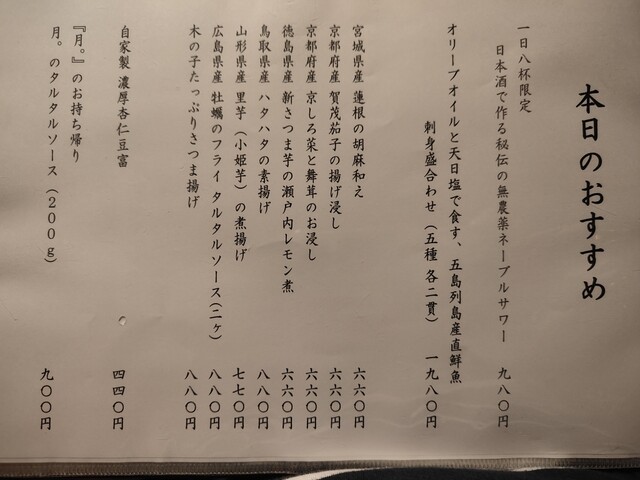 本日のおすすめ
一日八杯限定
日本酒で作る秘伝の無農薬ネーブルサワー 九八〇円
オリーブオイルと天日塩で食す、五島列島産直鮮魚
刺身盛合わせ（五種 各二貫） 一九八〇円
宮城県産 蓮根の胡麻和え 六六〇円
京都府産 賀茂茄子の揚げ浸し 六六〇円
京都府産 京しろ菜と舞茸のお浸し 六六〇円
徳島県産 新さつま芋の瀬戸内レモン煮 六六〇円
鳥取県産 ハタハタの素揚げ 八八〇円
山形県産 里芋（小姫芋）の煮揚げ 七七〇円
広島県産 牡蠣のフライ タルタルソース（二ヶ） 八八〇円
木の子たっぷりさつま揚げ 八八〇円
自家製 濃厚杏仁豆富 四四〇円
『月。』のお持ち帰り
月。のタルタルソース（２００ｇ） 九〇〇円